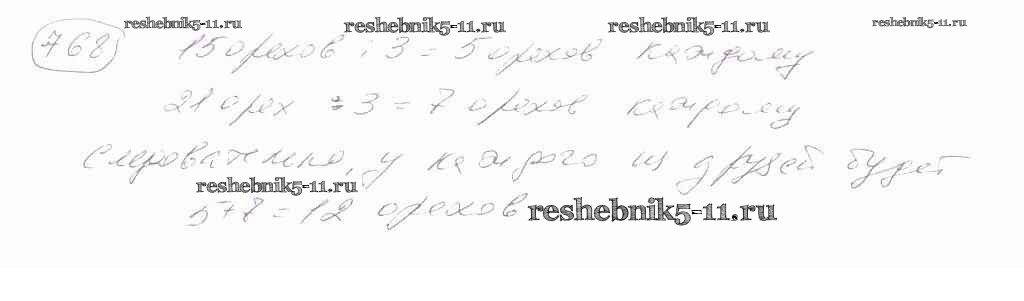 reshebnik5-11.ru reshebnik5-11.ru reshebnik5-11.ru reshebnik5-11.ru
768) 15 орехов : 3 = 5 орехов каждому
21 орех : 3 = 7 орехов каждому
следовательно, у каждого из друзей будет
reshebnik5-11.ru
5+7=12 орехов reshebnik5-11.ru